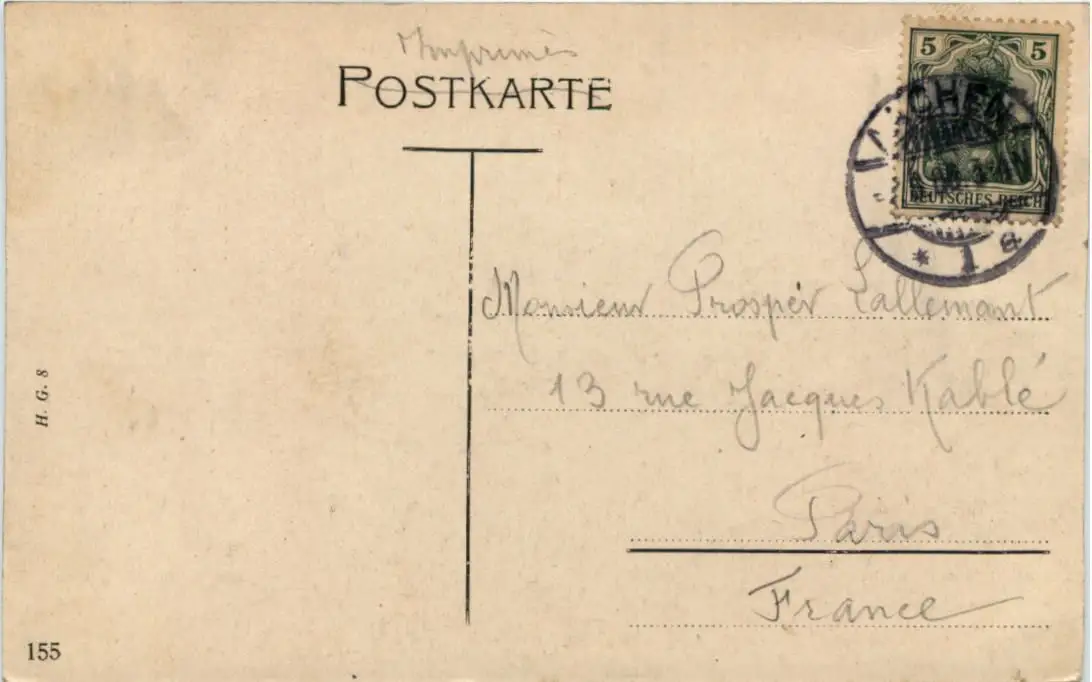 Imprimés
POSTKARTE
5 5
DEUTSCHES REICH
CHEN
* 1 a
Monsieur Prosper Lallemant
13 rue Jacques Kablé
Paris
France
H. G. 8
155